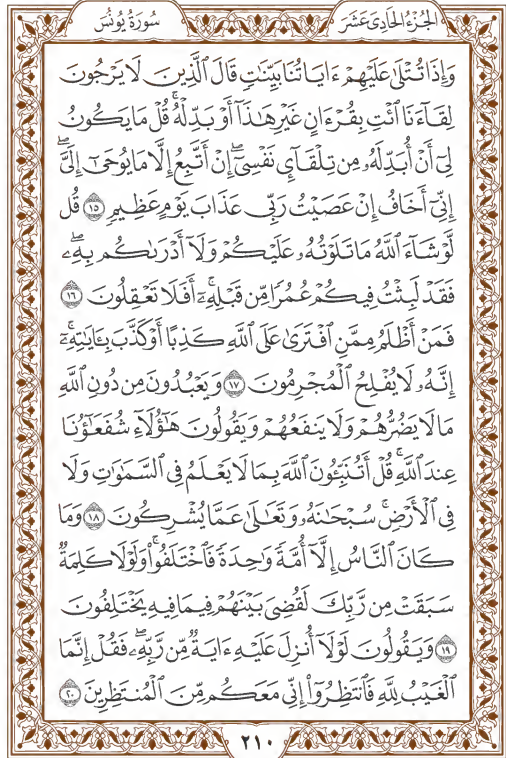 الجُزْءُ الحَادِى عَشَرَ
سُورَةُ يُونُس
وَإِذَا تُتْلَىٰ عَلَيْهِمْ ءَايَاتُنَا بَيِّنَٰتٍ قَالَ ٱلَّذِينَ لَا يَرْجُونَ
لِقَآءَنَا ٱئْتِ بِقُرْءَانٍ غَيْرِ هَٰذَآ أَوْ بَدِّلْهُ ۚ قُلْ مَا يَكُونُ
لِىٓ أَنْ أُبَدِّلَهُۥ مِن تِلْقَآئِ نَفْسِىٓ ۖ إِنْ أَتَّبِعُ إِلَّا مَا يُوحَىٰٓ إِلَىَّ ۖ
إِنِّىٓ أَخَافُ إِنْ عَصَيْتُ رَبِّى عَذَابَ يَوْمٍ عَظِيمٍ ١٥ قُل
لَّوْ شَآءَ ٱللَّهُ مَا تَلَوْتُهُۥ عَلَيْكُمْ وَلَآ أَدْرَىٰكُم بِهِۦ ۖ
فَقَدْ لَبِثْتُ فِيكُمْ عُمُرًا مِّن قَبْلِهِۦٓ ۚ أَفَلَا تَعْقِلُونَ ١٦
فَمَنْ أَظْلَمُ مِمَّنِ ٱفْتَرَىٰ عَلَى ٱللَّهِ كَذِبًا أَوْ كَذَّبَ بِـَٔايَٰتِهِۦٓ ۚ
إِنَّهُۥ لَا يُفْلِحُ ٱلْمُجْرِمُونَ ١٧ وَيَعْبُدُونَ مِن دُونِ ٱللَّهِ
مَا لَا يَضُرُّهُمْ وَلَا يَنفَعُهُمْ وَيَقُولُونَ هَٰٓؤُلَآءِ شُفَعَٰٓؤُنَا
عِندَ ٱللَّهِ ۚ قُلْ أَتُنَبِّـُٔونَ ٱللَّهَ بِمَا لَا يَعْلَمُ فِى ٱلسَّمَٰوَٰتِ وَلَا
فِى ٱلْأَرْضِ ۚ سُبْحَٰنَهُۥ وَتَعَٰلَىٰ عَمَّا يُشْرِكُونَ ١٨ وَمَا
كَانَ ٱلنَّاسُ إِلَّآ أُمَّةً وَٰحِدَةً فَٱخْتَلَفُوا۟ ۚ وَلَوْلَا كَلِمَةٌ
سَبَقَتْ مِن رَّبِّكَ لَقُضِىَ بَيْنَهُمْ فِيمَا فِيهِ يَخْتَلِفُونَ
١٩ وَيَقُولُونَ لَوْلَآ أُنزِلَ عَلَيْهِ ءَايَةٌ مِّن رَّبِّهِۦ ۖ فَقُلْ إِنَّمَا
ٱلْغَيْبُ لِلَّهِ فَٱنتَظِرُوٓا۟ إِنِّى مَعَكُم مِّنَ ٱلْمُنتَظِرِينَ ٢٠
٢١٠